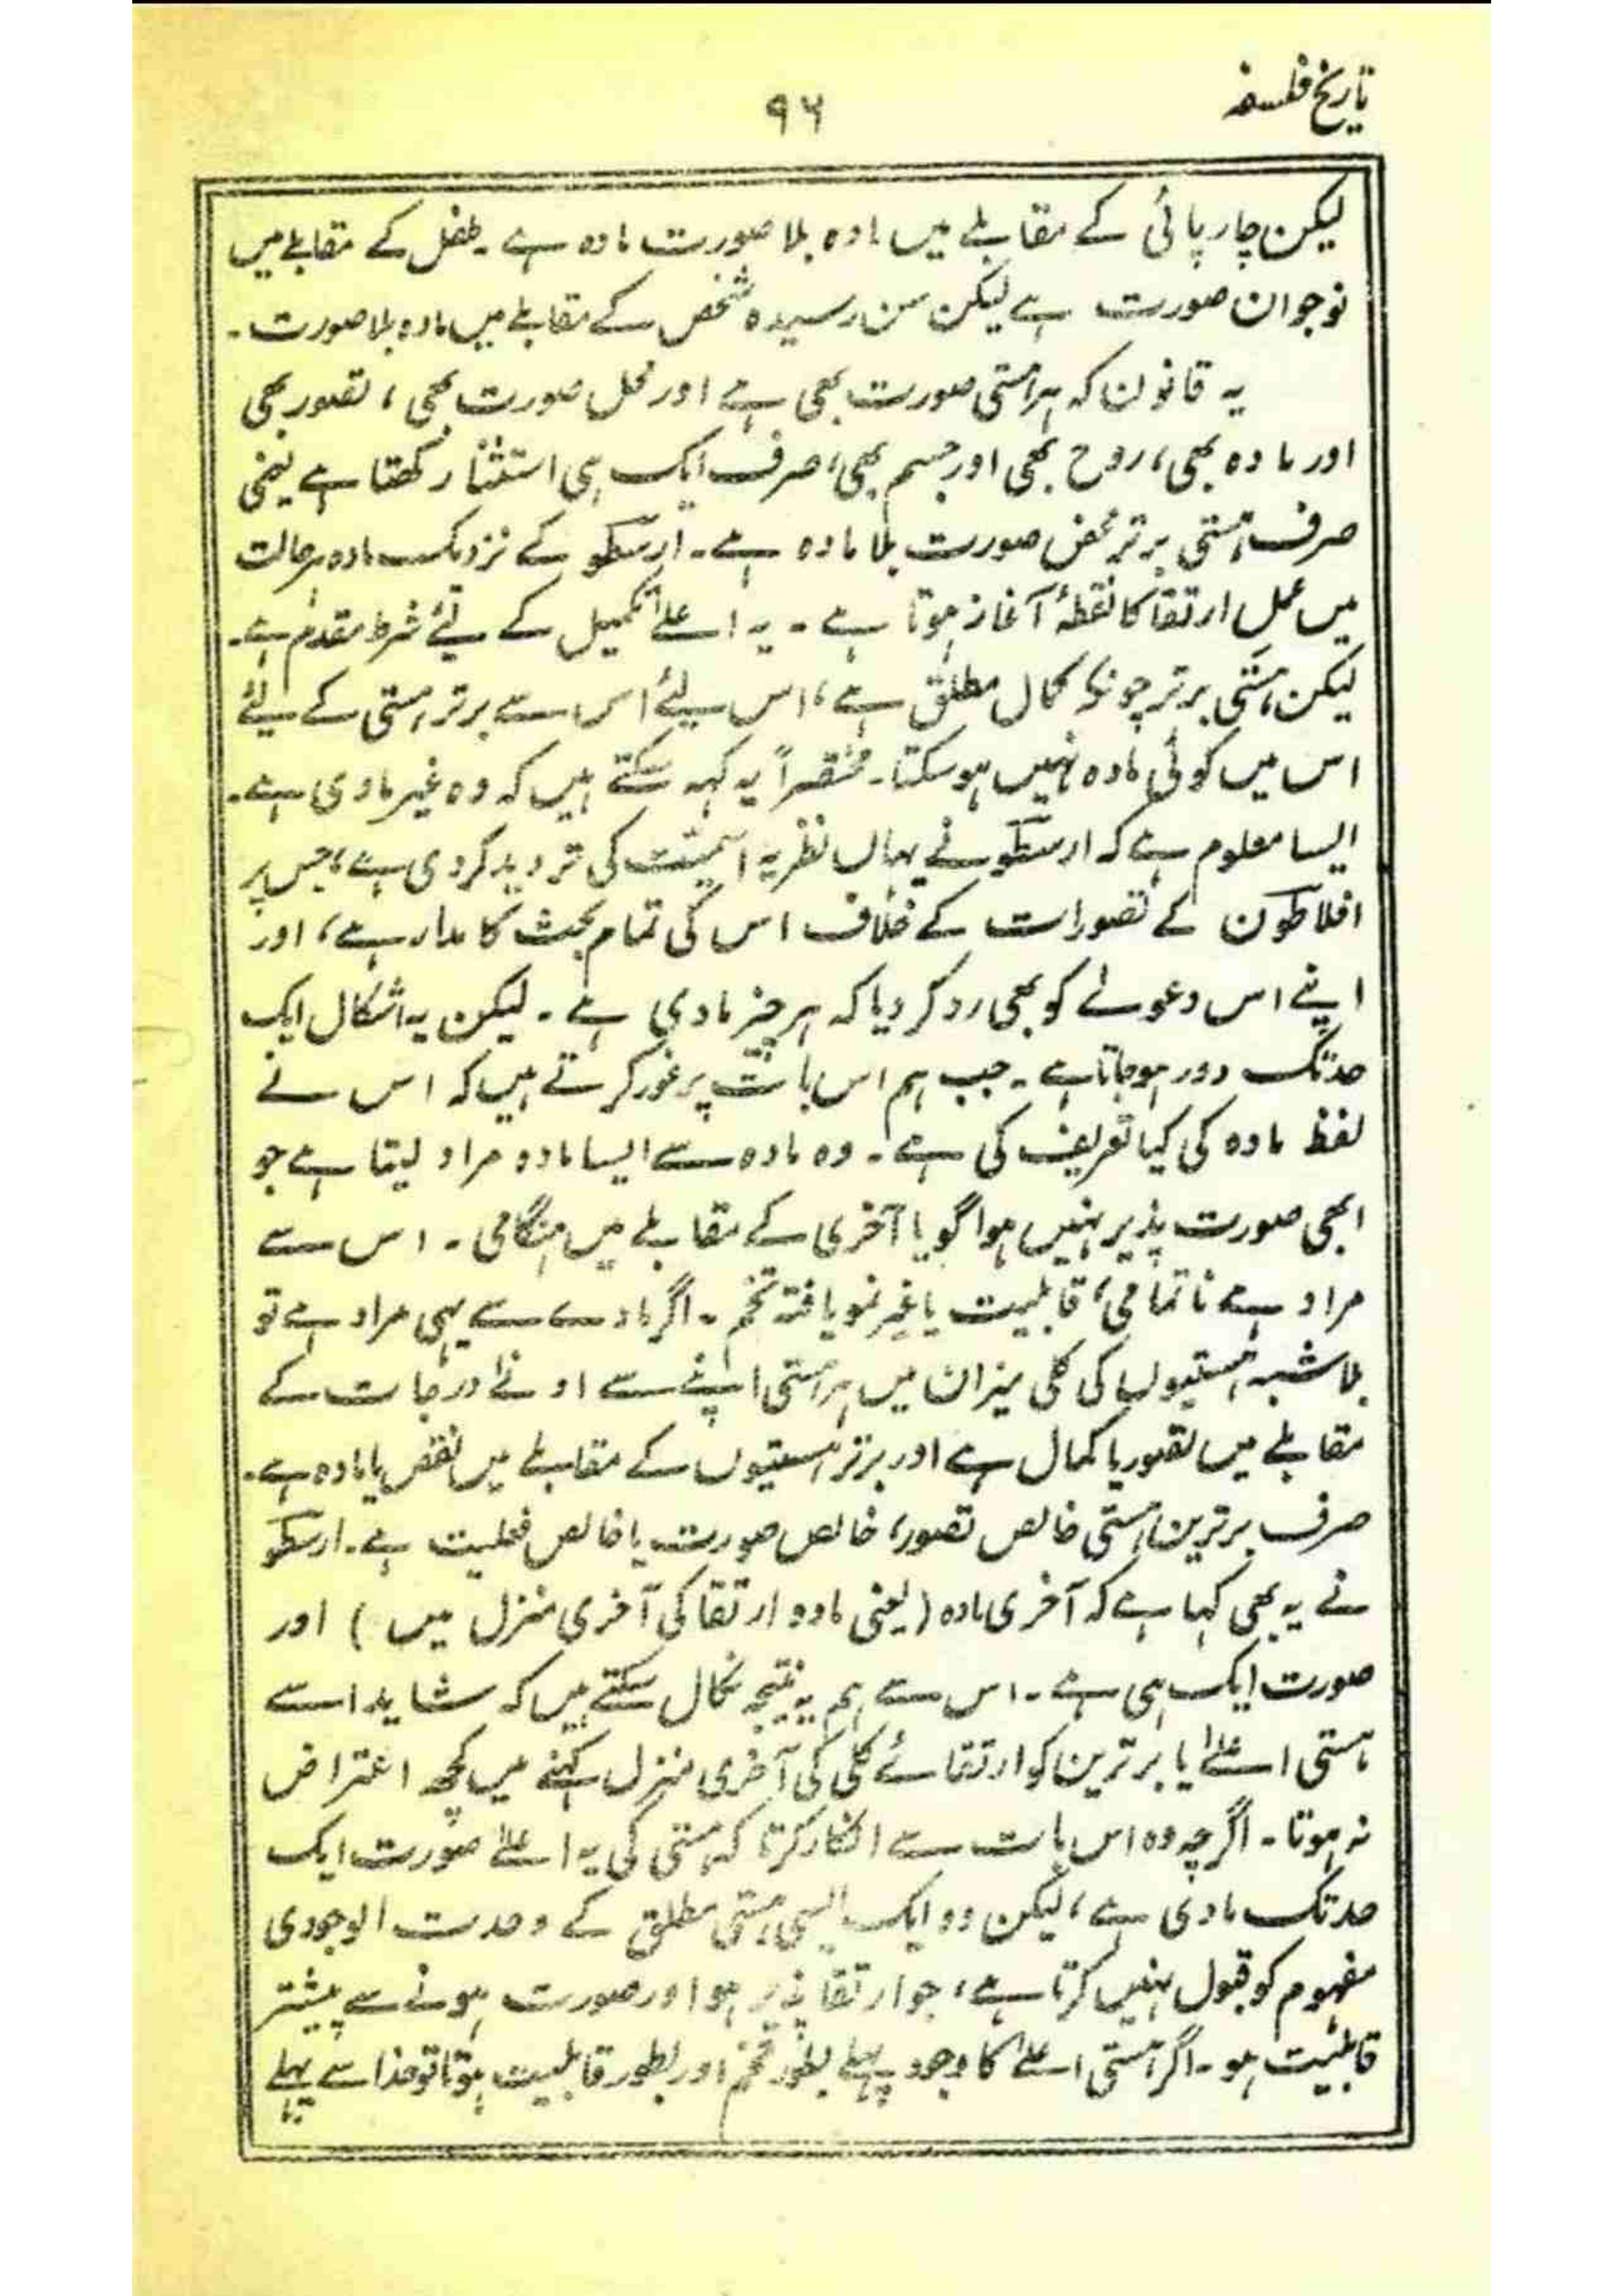 تاریخ فلسفہ
۹۶
لیکن چارپائی کے مقابلے میں مادہ بلا صورت مادہ ہے ۔ طفل کے مقابلے میں
نوجوان صورت ہے لیکن سن رسیدہ شخص کے مقابلے میں مادہ بلا صورت ۔
یہ قانون کہ ہر ہستی صورت بھی ہے اور محل صورت بھی ، تصور بھی
اور مادہ بھی ، روح بھی اور جسم بھی ، صرف ایک ہی استثنا رکھتا ہے یعنی
صرف ہستی برتر محض صورت بلا مادہ ہے ۔ ارسطو کے نزدیک مادہ ہر حالت
میں عمل ارتقا کا نقطۂ آغاز ہوتا ہے ۔ یہ اعلےٰ تکمیل کے لیٔے شرط مقدم ہے ۔
لیکن ہستی برتر چونکہ کمال مطلق ہے ، اس لیٔے اس سے برتر ہستی کے لیٔے
اس میں کوئی مادہ نہیں ہو سکتا ۔ مختصراً یہ کہہ سکتے ہیں کہ وہ غیر مادی ہے ۔
ایسا معلوم ہے کہ ارسطو نے یہاں نظریہ اسمیت کی تردید کر دی ہے ، جس پر
افلاطون کے تصورات کے خلاف اس کی تمام بحث کا مدار ہے ، اور
اپنے اس دعوےٰ کو بھی رد کر دیا کہ ہر چیز مادی ہے ۔ لیکن یہ اشکال ایک
حد تک دور ہو جاتا ہے ۔ جب ہم اس بات پر غور کرتے ہیں کہ اس نے
لفظ مادہ کی کیا تعریف کی ہے ۔ وہ مادہ سے ایسا مادہ مراد لیتا ہے جو
ابھی صورت پذیر نہیں ہوا گویا آخری کے مقابلے میں ہنگامی ۔ اس سے
مراد ہے ناتمامی ، قابلیت یا غیر نمو یافتہ تخم ۔ اگر مادے سے یہی مراد ہے تو
بلا شبہ ہستیوں کی کلی میزان میں ہر ہستی اپنے سے ادنےٰ درجات کے
مقابلے میں تصور یا کمال ہے اور برتر ہستیوں کے مقابلے میں نقص یا مادہ ہے ۔
صرف برترین ہستی خالص تصور ، خالص صورت یا خالص فعلیت ہے ۔ ارسطو
نے یہ بھی کہا ہے کہ آخری مادہ ( یعنی مادہ ارتقا کی آخری منزل میں ) اور
صورت ایک ہی ہے ۔ اس سے ہم یہ نتیجہ نکال سکتے ہیں کہ شاید اسے
ہستی اعلےٰ یا برترین کو ارتقائے کلی کی آخری منزل کہنے میں کچھ اعتراض
نہ ہوتا ۔ اگرچہ وہ اس بات سے انکار کرتا کہ ہستی کی یہ اعلےٰ صورت ایک
حد تک مادی ہے ، لیکن وہ ایک ایسی ہستی مطلق کے وحدت الوجودی
مفہوم کو قبول نہیں کرتا ہے ، جو ارتقا پذیر ہو اور صورت ہونے سے پیشتر
قابلیت ہو ۔ اگر ہستی اعلےٰ کا وجود پہلے بطور تخم اور بطور قابلیت ہوتا تو خدا سے پہلے